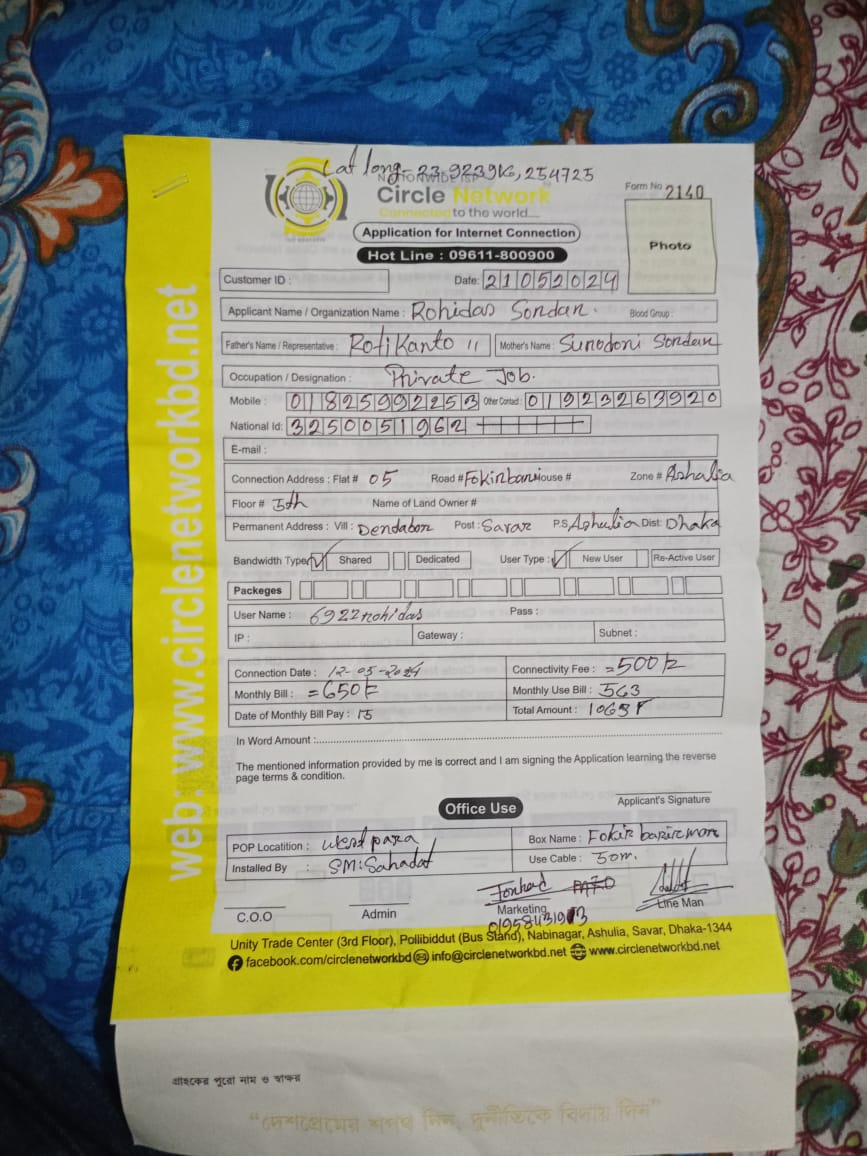 Lat long- 23.923916, 254725
NATIONWIDE ISP
Circle Network
Connected to the world....
Form No 2140
Application for Internet Connection
Hot Line : 09611-800900
Photo
Customer ID :
Date: 21052024
Applicant Name / Organization Name : Rohidas Sordar. Blood Group :
Father's Name / Representative : Rotikanto 11 Mother's Name : Sunodoni Sordar
Occupation / Designation : Private Job.
Mobile : 01825992253 Other Contact : 01923263920
National Id: 3250051962
E-mail :
Connection Address : Flat # 05 Road # Fokirbari House # Zone # Ashulia
Floor # 5th Name of Land Owner #
Permanent Address : Vill : Dendabor Post : Savar P.S Ashulia Dist: Dhaka
Bandwidth Type: Shared Dedicated User Type : New User Re-Active User
Packeges
User Name : 6922rohidas Pass :
IP : Gateway : Subnet :
Connection Date : 12-05-2024 Connectivity Fee : =500/=
Monthly Bill : =650/= Monthly Use Bill : 563
Date of Monthly Bill Pay : 15 Total Amount : 1063
In Word Amount :
The mentioned information provided by me is correct and I am signing the Application learning the reverse
page terms & condition.
Applicant's Signature
Office Use
POP Locatition : west para Box Name : Fokir barir mor
Installed By : SM: Sahadat Use Cable : 50m.
C.O.O Admin Marketing Line Man
Unity Trade Center (3rd Floor), Pollibiddut (Bus Stand), Nabinagar, Ashulia, Savar, Dhaka-1344
facebook.com/circlenetworkbd info@circlenetworkbd.net www.circlenetworkbd.net
web: www.circlenetworkbd.net
গ্রাহকের পুরো নাম ও স্বাক্ষর
“দেশপ্রেমের শপথ নিন, দুর্নীতিকে বিদায় দিন”